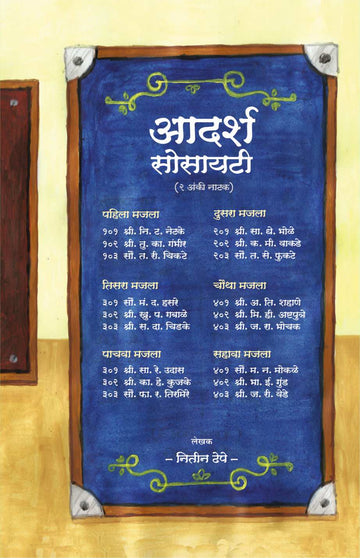 आदर्श
सोसायटी
(२ अंकी नाटक)
पहिला मजला
१०१ श्री. नि. ट. नेटके
१०२ श्री. तु. का. गंभीर
१०३ सौ. त. री. चिकटे
दुसरा मजला
२०१ श्री. सा. धे. भोळे
२०२ श्री. क. मी. वाकडे
२०३ सौ. त. री. फुकटे
तिसरा मजला
३०१ सौ. मं. द. हसरे
३०२ श्री. खु. प. गबाळे
३०३ श्री. स. दा. चिडके
चौथा मजला
४०१ श्री. अ. ति. शहाणे
४०२ श्री. मि. ही. अष्टपुत्रे
४०३ श्री. ज. रा. भोचक
पाचवा मजला
३०१ श्री. सा. रे. उदास
३०२ श्री. का. हे. कुजके
३०३ सौ. फा. र. तिरमिरे
सहावा मजला
४०१ सौ. म. न. मोकळे
४०२ श्री. भा. ई. गुंड
४०३ श्री. ज. री. वेडे
लेखक
– नितीन टेपे –